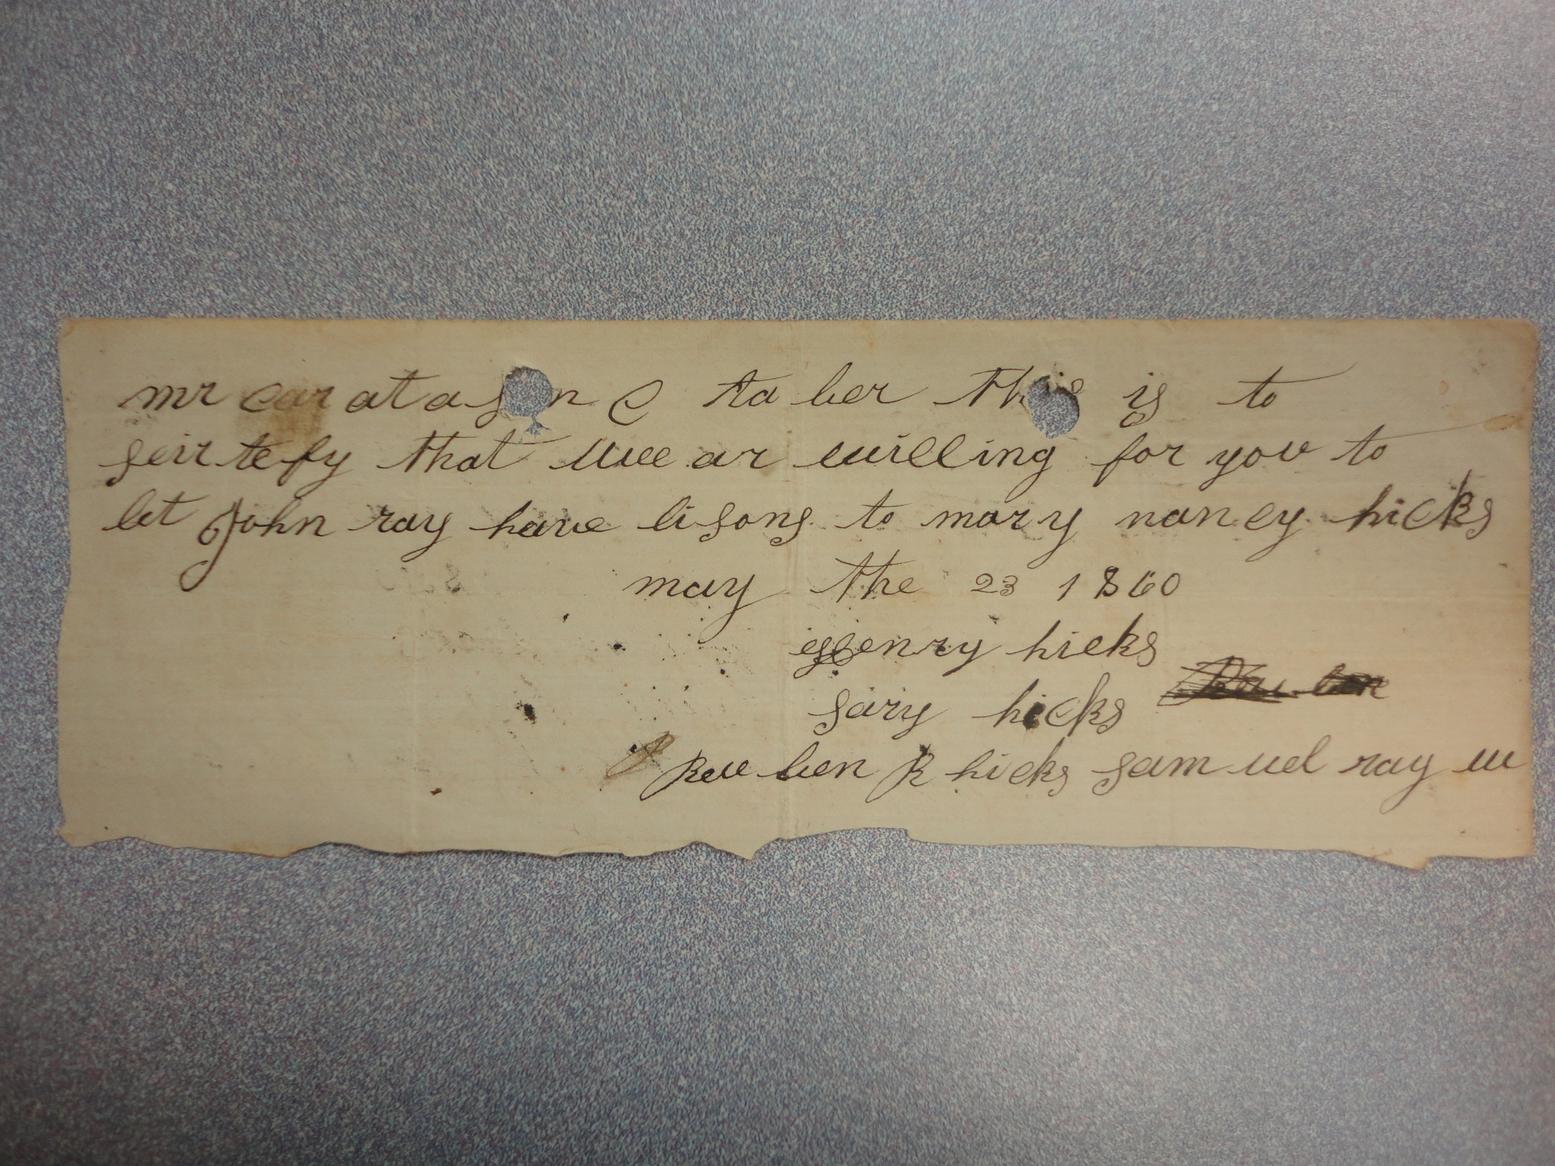 mr caratas n C ta ber this is to
seirtefy that wee ar willing for you to
let John ray have lisons to mary nancy hicks
may the 23 1860
Henry hicks
sary hicks
Reu ben R hicks sam uel ray w